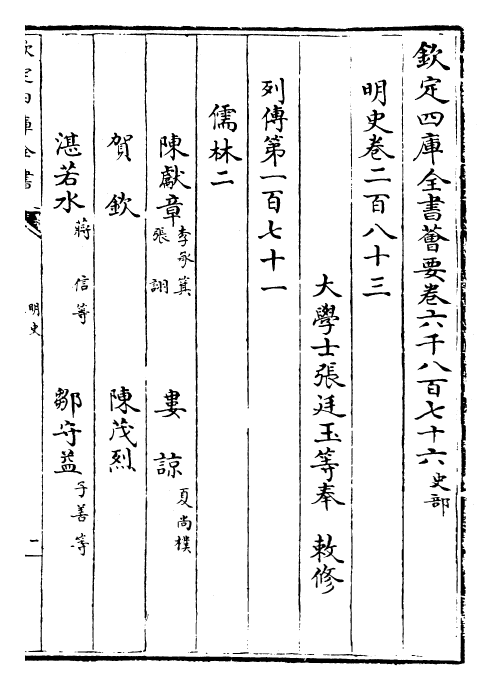 欽定四庫全書薈要卷六千八百七十六 史部
明史卷二百八十三
大學士張廷玉等奉 敕修
列傳第一百七十一
儒林二
陳獻章 李承箕 張詡 婁諒 夏尚樸
賀欽 陳茂烈
湛若水 蔣信等 鄒守益 子善等
欽定四庫全書 明史 二